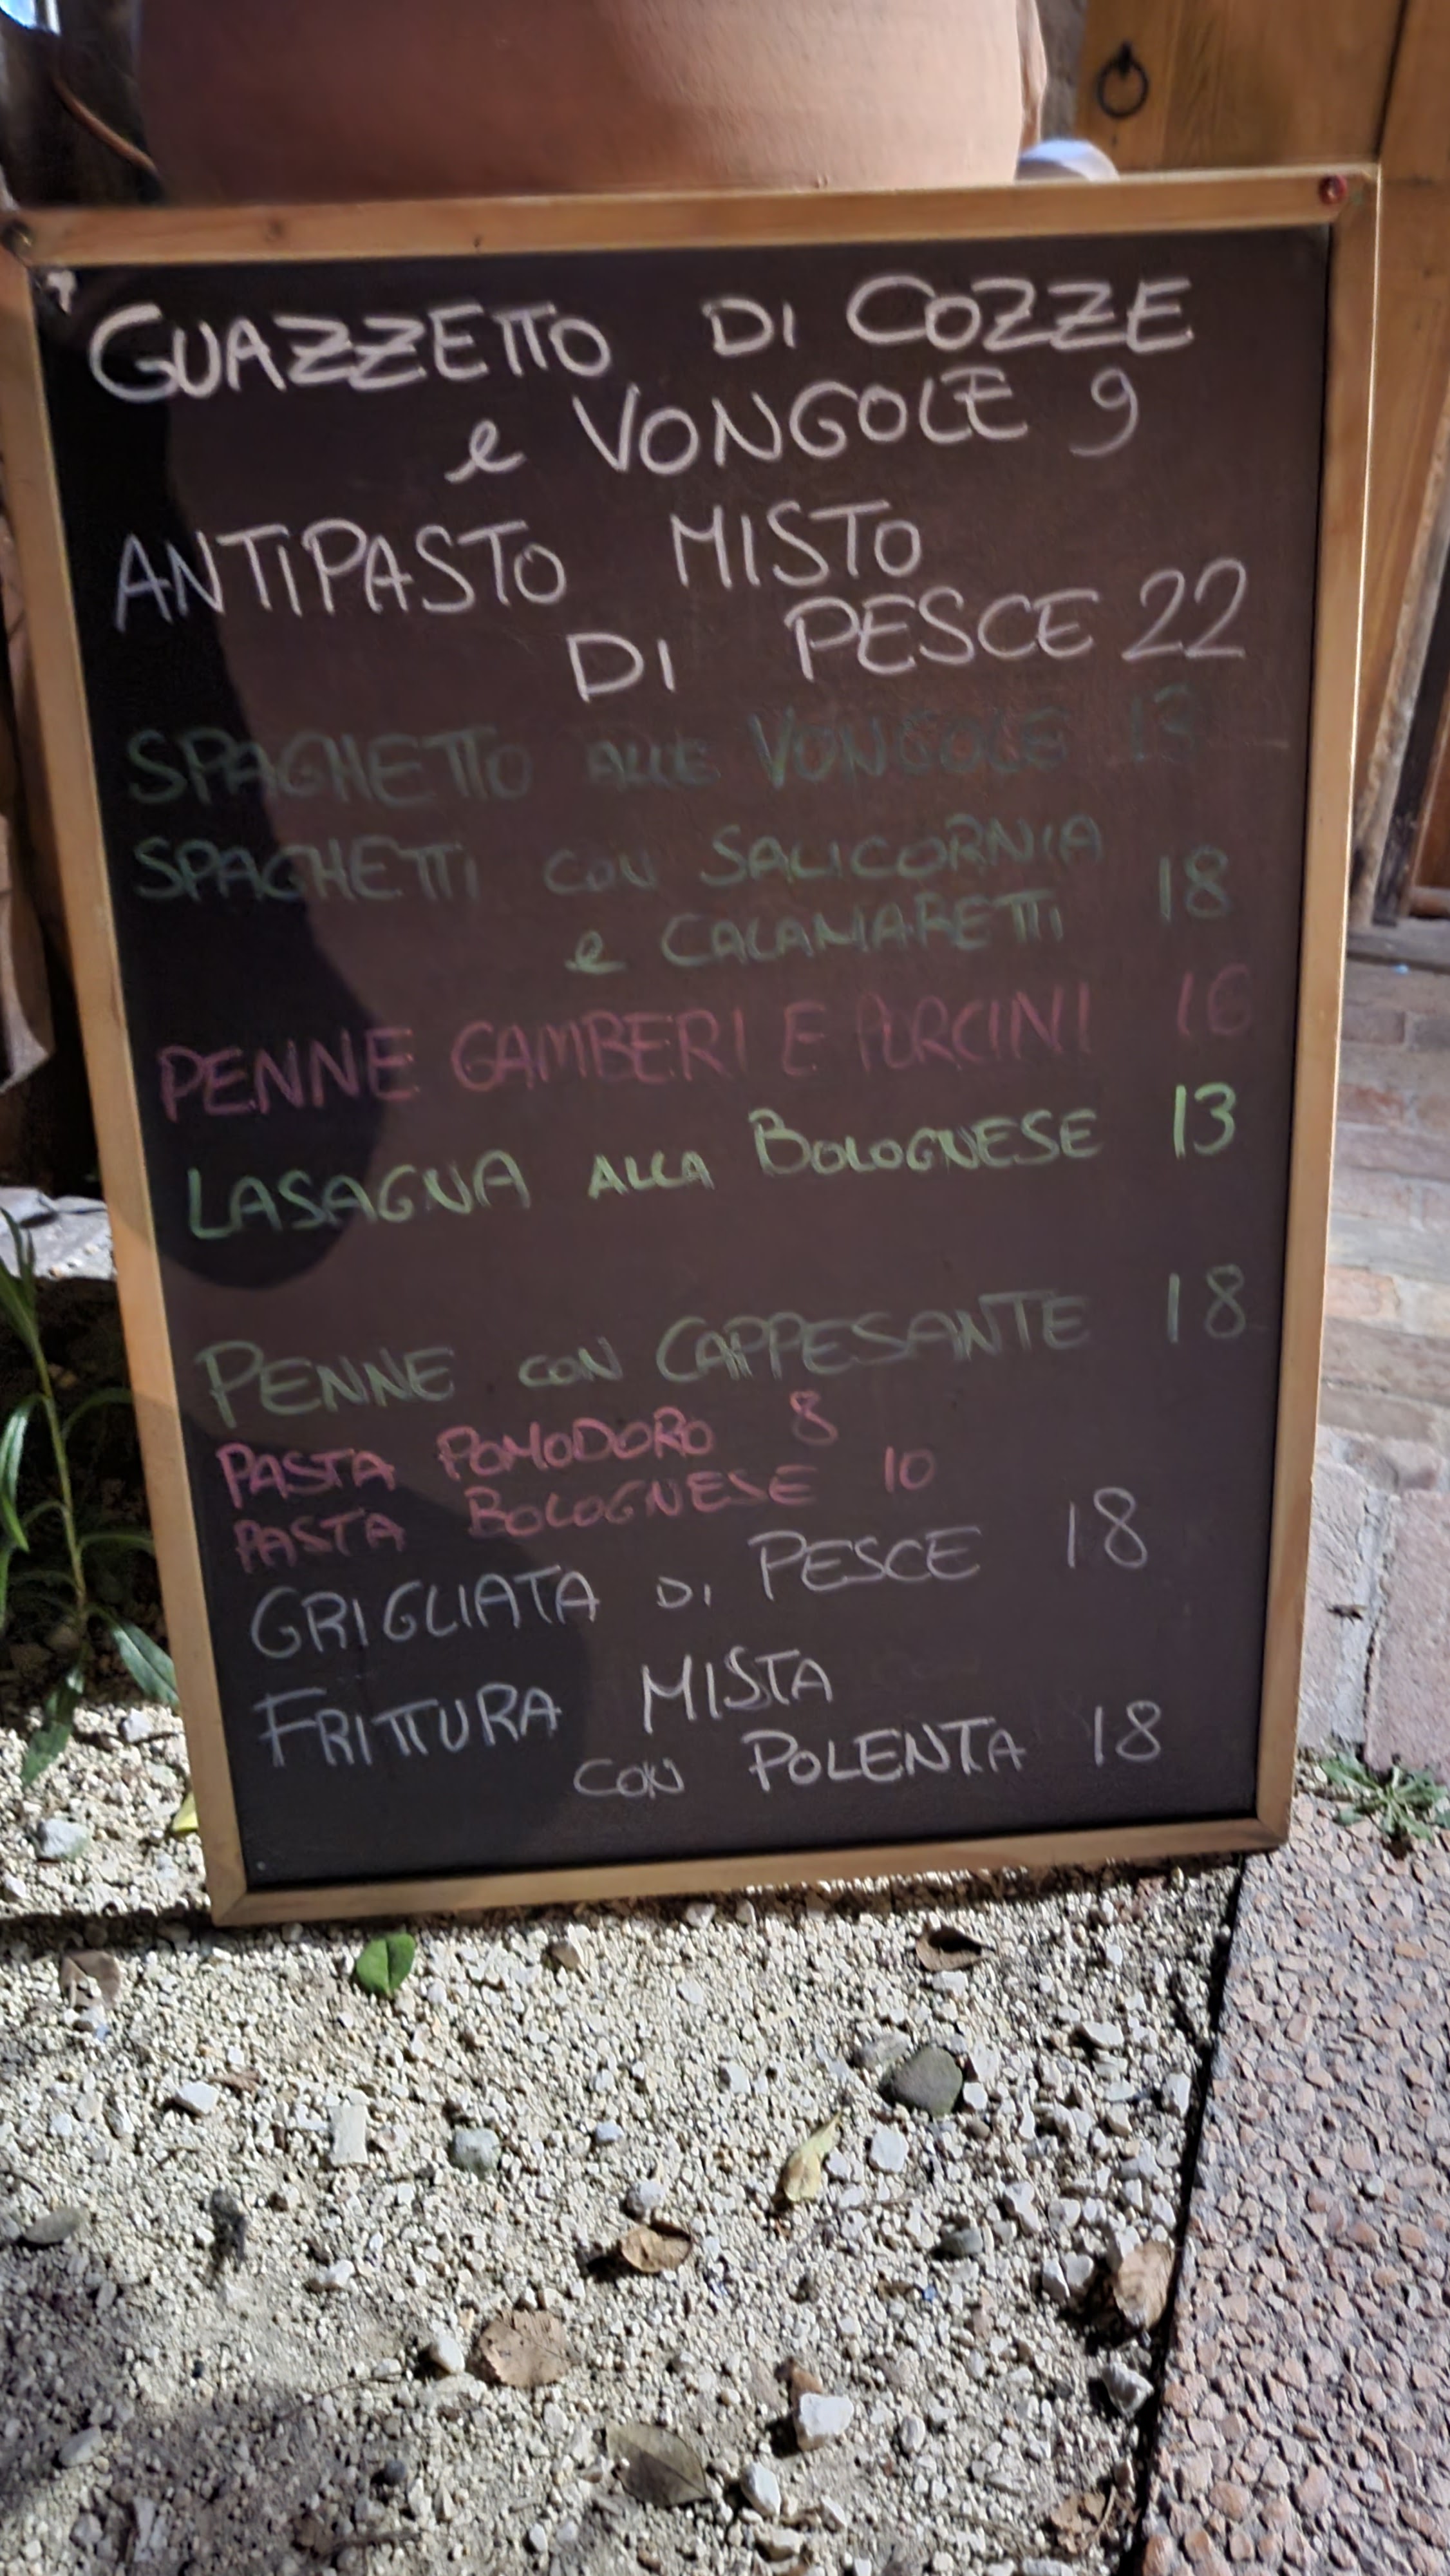 GUAZZETTO DI COZZE
e VONGOLE 9
ANTIPASTO MISTO
DI PESCE 22
SPAGHETTO ALLE VONGOLE
SPAGHETTI CON SALICORNIA
e CALAMARETTI 18
PENNE GAMBERI E PORCINI 16
LASAGNA ALLA BOLOGNESE 13
PENNE CON CAPPESANTE 18
PASTA POMODORO 8
PASTA BOLOGNESE 10
GRIGLIATA DI PESCE 18
FRITTURA MISTA
CON POLENTA 18